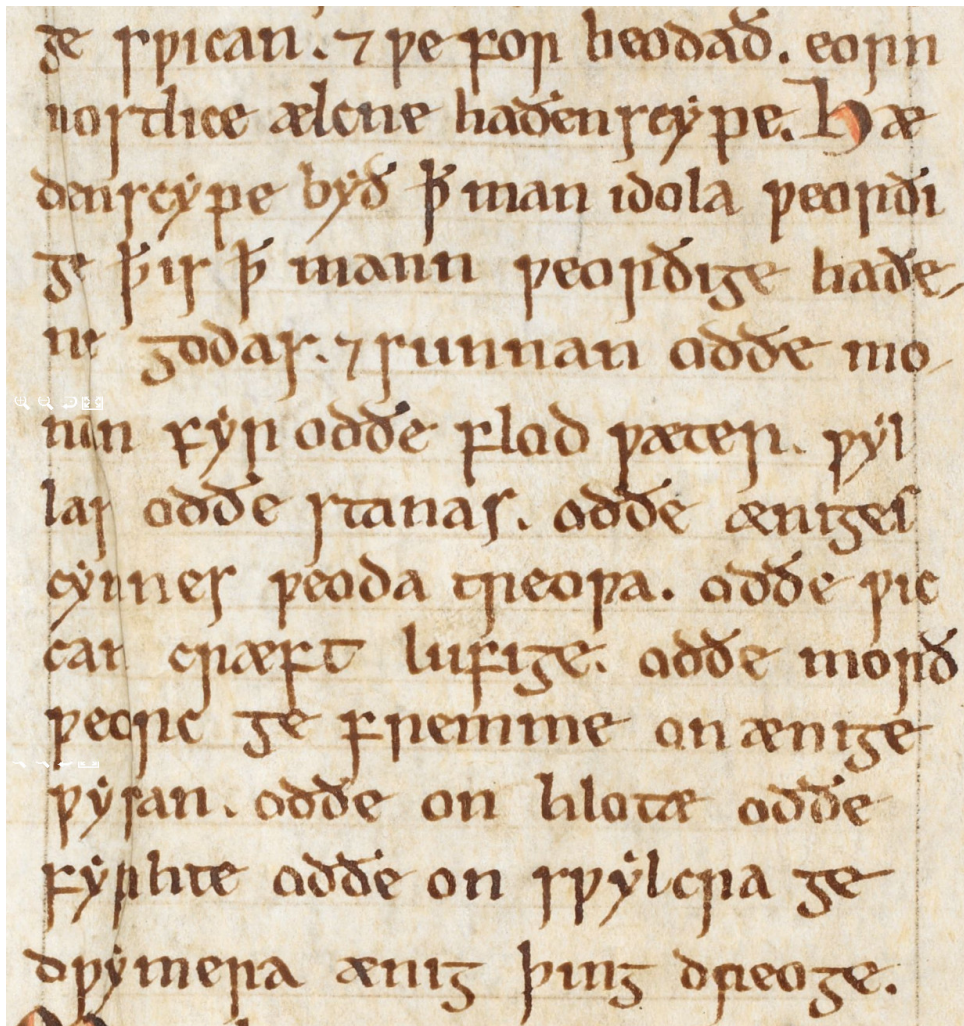 ge swican. ⁊ we forbeodað. eorn
nostlice ælcne haðenscẏpe. Hæ
denscẏpe bẏð ꝥ man idola weorði
ge ꝥ is ꝥ mann weorðige haðe
ne godas. ⁊ sunnan oððe mo
nan fẏr oððe flod wæter. wẏl
las oððe stanas. oððe æniges
cẏnnes weoda treowa. oððe wic
can cræft lufige. oððe morð
weorc ge fremme on ænige
wẏsan. oððe on hlotæ oððe
fẏrhte oððe on swẏlcra ge
dwẏmera ænig þing dreoge.